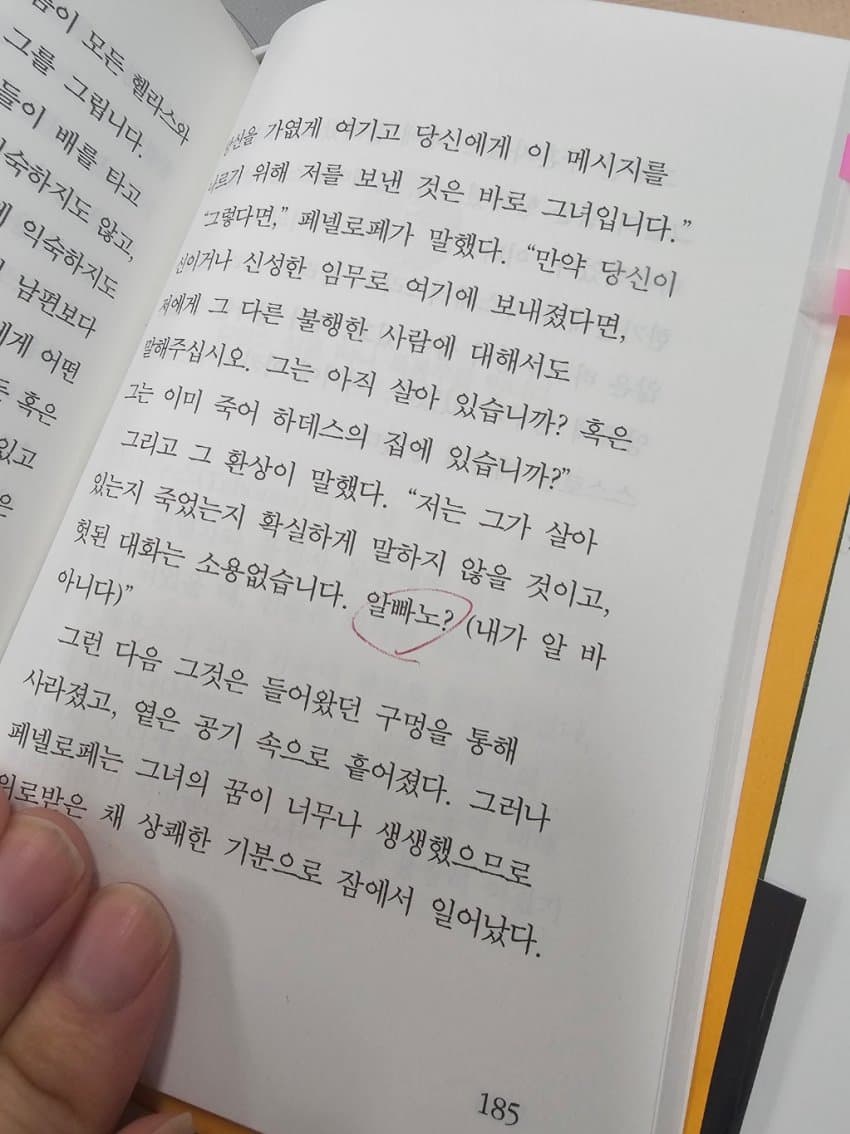 음이 모든 헬라스와
그를 그립니다.
들이 배를 타고
숙하지도 않고,
익숙하지도
남편보다
에게 어떤
혹은
있고
은
당신을 가엾게 여기고 당신에게 이 메시지를
나르기 위해 저를 보낸 것은 바로 그녀입니다.”
“그렇다면,” 페넬로페가 말했다. “만약 당신이
신이거나 신성한 임무로 여기에 보내졌다면,
저에게 그 다른 불행한 사람에 대해서도
말해주십시오. 그는 아직 살아 있습니까? 혹은
그는 이미 죽어 하데스의 집에 있습니까?”
그리고 그 환상이 말했다. “저는 그가 살아
있는지 죽었는지 확실하게 말하지 않을 것이고,
헛된 대화는 소용없습니다. 알빠노? (내가 알 바
아니다)”
그런 다음 그것은 들어왔던 구멍을 통해
사라졌고, 옅은 공기 속으로 흩어졌다. 그러나
페넬로페는 그녀의 꿈이 너무나 생생했으므로
위로받은 채 상쾌한 기분으로 잠에서 일어났다.
185